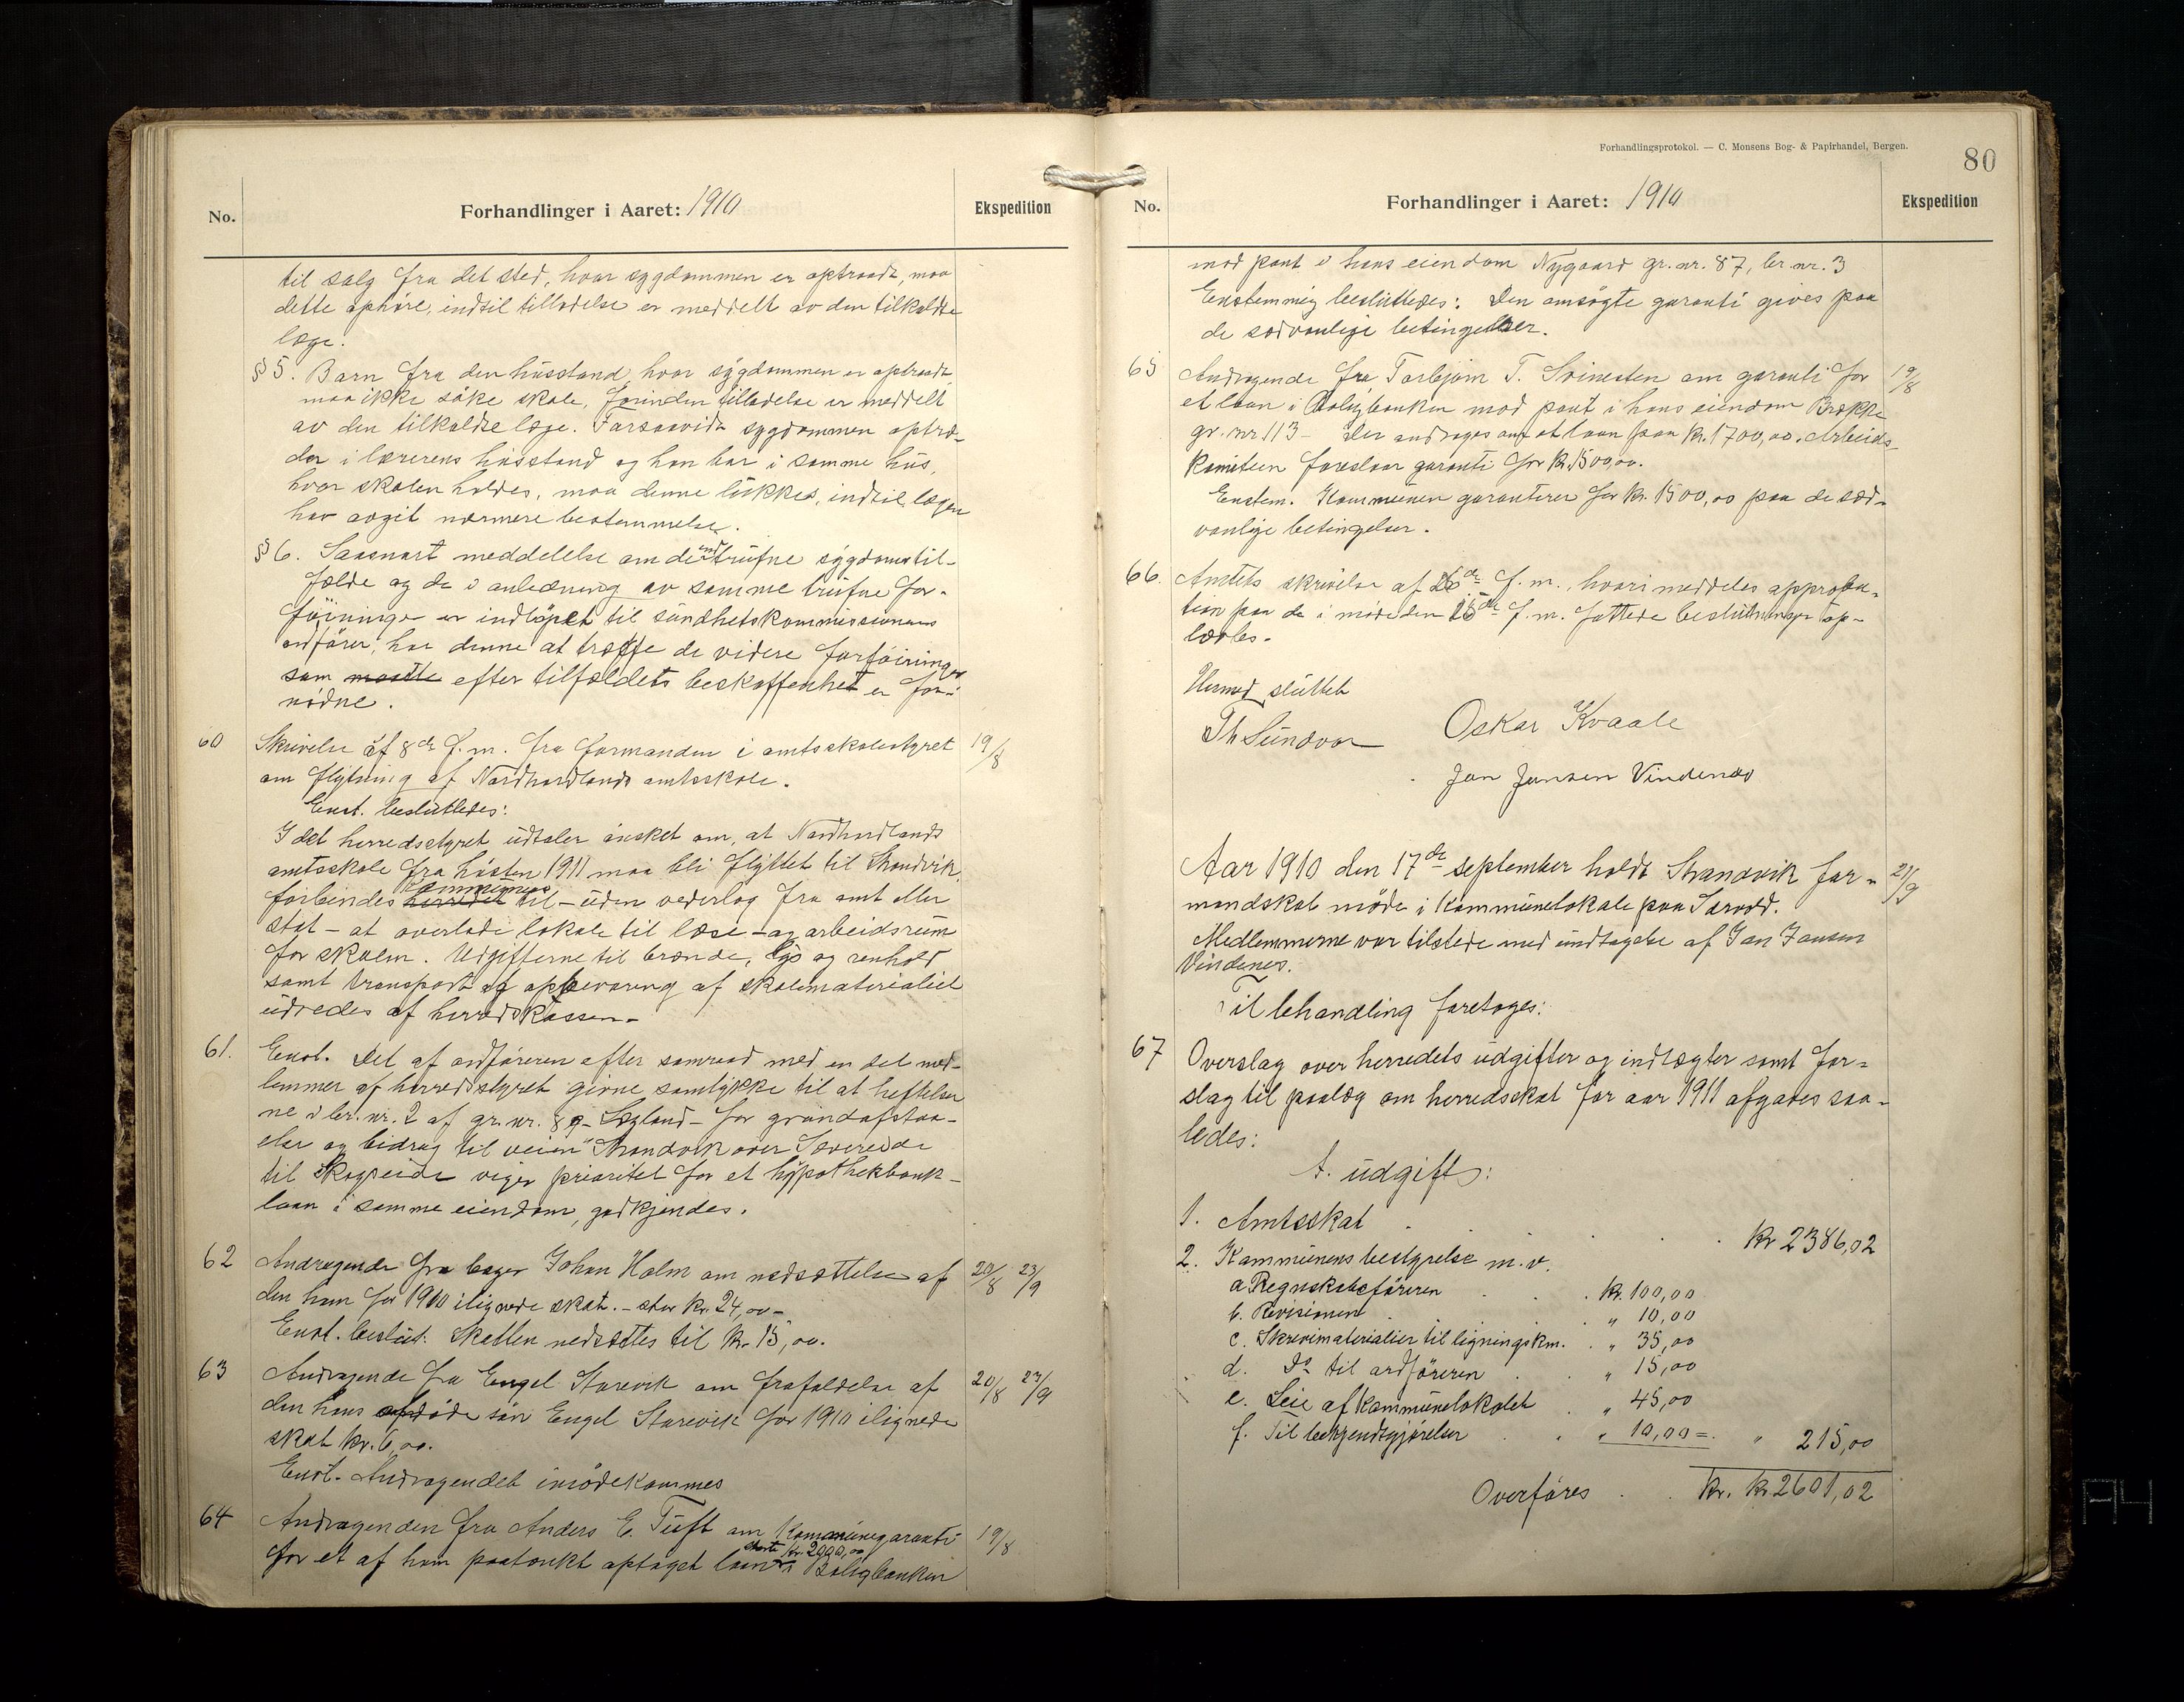 No.
Forhandlinger i Aaret: 1910
Ekspedition
til salg fra det sted, hvor sygdommen er optraadt, maa
dette ophøre, indtil tilladelse er meddelt av den tilkaldte
læge.
§ 5. Barn fra den husstand, hvor sygdommen er optraadt
maa ikke søke skole, forinden tilladelse er meddelt
av den tilkaldte læge. Forsaavidt sygdommen optræ-
der i lærerens husstand og han bor i samme hus,
hvor skolen holdes, maa denne lukkes, indtil lægen
har avgit nærmere bestemmelse.
§ 6. Saasnart meddelelse om de indtrufne sygdomstil-
fælde og de i anledning av samme trufne for-
føininger er indløpet til sundhetskommissionens
ordfører, har denne at træffe de videre forføininger
som efter tilfældets beskaffenhet er for-
nødne.
60 Skrivelse af 8de f.m. fra formanden i amtsskolestyret 19/8
om flytning af Nordhordlands amtsskole.
Enst. besluttedes:
I det herredsstyret udtaler ønsket om, at Nordhordlands
amtsskole fra høsten 1911 maa bli flyttet til Strandvik,
forbindes kommunen til - uden vederlag fra amt eller
stat - at overlade lokale til læse- og arbeidsrum
for skolen. Udgifterne til brænde, lys og renhold
samt transport og opbevaring af skolematerialiel
udredes af herredskassen.
61. Enst. Det af ordføreren efter samraad med en del med-
lemmer af herredsstyret givne samtykke til at heftelser
ne i br. nr. 2 af gr. nr. 89 - Lygland - for grundafstaa-
elser og bidrag til veien Strandvik over Sævereide
til Skogseide viger prioritet for et hypothekbank-
laan i samme eiendom, godkjendes.
62 Andragende fra bager Johan Holm om nedsættelse af 20/8 23/9
den ham for 1910 ilignede skat. - stor kr. 24,00 -
Enst. beslut: Skatten nedsættes til kr. 15,00.
63 Andragende fra Engel Starevik om frafaldelse af 20/8 23/9
den hans afdøde søn Engel Starevik for 1910 ilignede
skat kr. 6,00.
Enst. Andragendet imødekommes
64 Andragenden fra Anders E. Tuft om kommunegaranti 19/8
stort kr. 2000,00
for et af ham paatænkt optaget laan i Boligbanken
Forhandlingsprotokol. — C. Monsens Bog- & Papirhandel, Bergen.
80
No.
Forhandlinger i Aaret: 1910
Ekspedition
mod pant i hans eiendom Nygaard gr. nr. 87, br. nr. 3
Enstemmig besluttedes: Den ansøgte garanti gives paa
de sædvanlige betingelser.
65 Andragende fra Torbjørn T. Svinesten om garanti for 19/8
et laan i Boligbanken mod pant i hans eiendom Brekke
gr. nr. 113 - Der andrages om et laan paa kr. 1700,00. Arbeids-
komiteen foreslaar garanti for kr. 1500,00.
Enstem. Kommunen garanterer for kr. 1500,00 paa de sæd-
vanlige betingelser.
66. Amtets skrivelse af 26de f.m., hvori meddeles approba-
tion paa de i møde den 15de f.m. fattede beslutninger op-
læstes.
Hermed sluttet
Th Sundvor Oskar Kvaale
Jan Jansen Vindenes
Aar 1910 den 17de september holdt Strandvik for- 21/9
mandskab møde i kommunelokale paa Sævold.
Medlemmerne var tilstede med undtagelse af Jan Jansen
Vindenes.
Til behandling foretoges:
67 Overslag over herredets udgifter og indtægter samt for-
slag til paalæg om herredsskat for aar 1911 afgaves saa-
ledes:
A. udgift:
1. Amtsskat . . . . kr 2386,02
2. Kommunens bestyrelse m.v.
a. Regnskabsføreren . . kr. 100,00
b. Revisionen . . " 10,00
c. Skrivematerialier til ligningskm. . " 35,00
d. Do til ordføreren . . " 15,00
e. Leie af kommunelokalet . " 45,00
f. Til bekjendtgjørelser . . " 10,00 = . " 215,00
Overføres . . kr. kr 2601,02